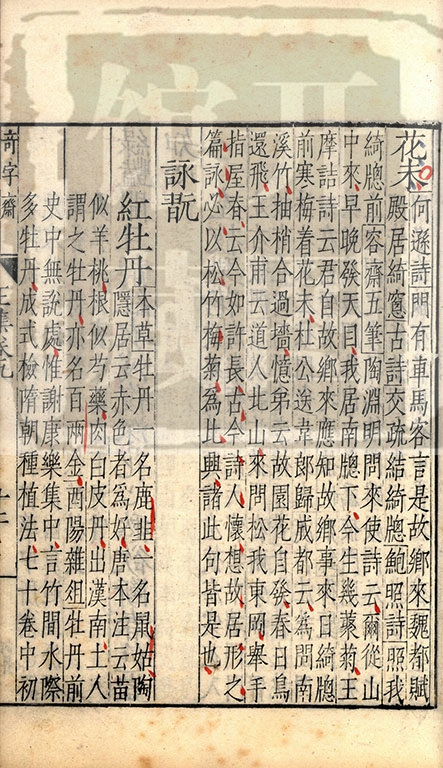 花未 何遜詩門有車馬客言是故鄉來魏都賦
殿居綺窻古詩交疏結綺牕鮑照詩照我
綺牕前容齋五筆陶淵明問來使詩云爾從山
中來早晚發天目我居南牕下今生幾藂菊王
摩詰詩云君自故鄉來應知故鄉事來日綺牕
前寒梅着花未杜公送韋郎歸成都云為問南
溪竹抽梢合過墻憶弟云故園花自發春日鳥
還飛王介甫云道人北山來問松我東岡舉手
指屋春云今如許長古今詩人懷想故居形之
篇詠必以松竹梅菊為比興諸此句皆是也
詠翫
紅牡丹 本草牡丹一名鹿韭一名鼠姑陶
隱居云赤色者為好唐本注云苗
似羊桃根似芍藥肉白皮丹出漢南土人
謂之牡丹亦名百兩金酉陽雜俎牡丹前
史中無說處惟謝康樂集中言竹間水際
多牡丹成式檢隋朝種植法七十卷中初
奇字齋
卷九